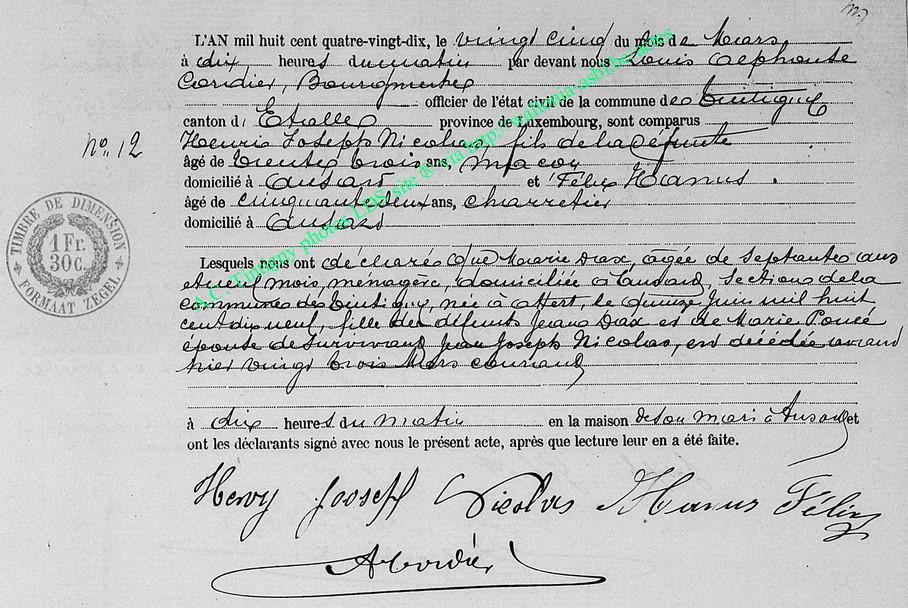 L'AN mil huit cent quatre-vingt-dix, le vingt cinq du mois de Mars
à dix heures du matin par devant nous Louis Alphonse
Cordier, Bourgmestre
officier de l'état civil de la commune de Tintigny
canton d'Etalle province de Luxembourg, sont comparus
Henri Joseph Nicolas, fils de la défunte
âgé de trente trois ans, maçon
domicilié à Ansart et Félix Hanus.
âgé de cinquante deux ans, charretier
domicilié à Ansart
Lesquels nous ont déclaré que Marie Dax, agée de septante ans
et neuf mois, ménagère, domiciliée à Ansart, section de la
commune de Tintigny, née à Attert, le quinze juin mil huit
cent dix neuf, fille des défunts Jean Dax et de Marie Poncé
épouse de survivant Jean Joseph Nicolas, est décédée avant
hier vingt trois Mars courant
à dix heures du matin en la maison de son mari à Ansart et
ont les déclarants signé avec nous le présent acte, après que lecture leur en a été faite.
Henry Joseph Nicolas Hanus Félix
ACordier
no. 12
TIMBRE DE DIMENSION
1 Fr.
30c.
FORMAAT ZEGEL
A.C. Tintigny photos LDS, site @ via http://wallonia-asbl.be/actes